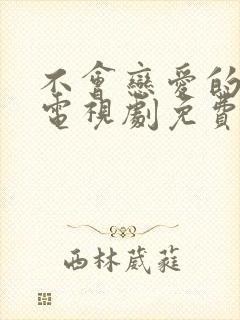 不會戀愛的
電視劇免費
西林葳蕤